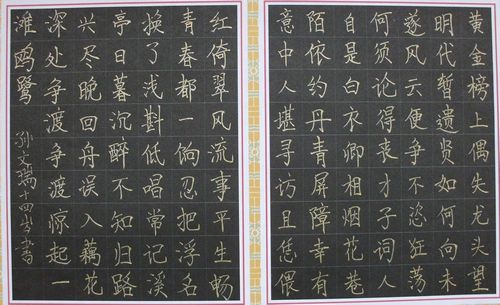 黄金榜上偶失龙头望
明代暂遗贤如何向未
遂风云便争不恣狂荡
何须论得丧才子词人
自是白衣卿相烟花巷
陌依约丹青屏障幸有
意中人堪寻访且恁偎
红倚翠风流事平生畅
青春都一饷忍把浮名
换了浅斟低唱常记溪
亭日暮沉醉不知归路
兴尽晚回舟误入藕花
深处争渡争渡惊起一
滩鸥鹭
孙文瑞十四岁书